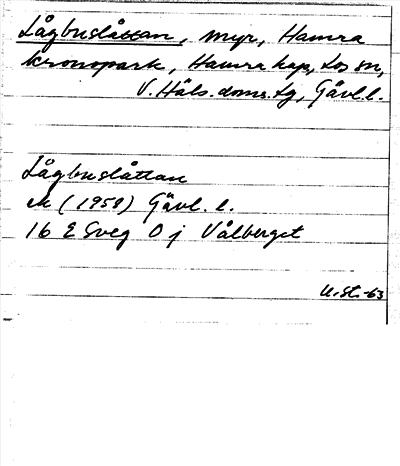 Lågbuslåttan, myr, Hamra
kronopark, Hamra kap, Los sn,
V. Häls. doms. tg, Gävl. l.
Lågbuslåttan
ek (1959) Gävl. l.
16 E Sveg 0 j Vålberget
U. St. -63